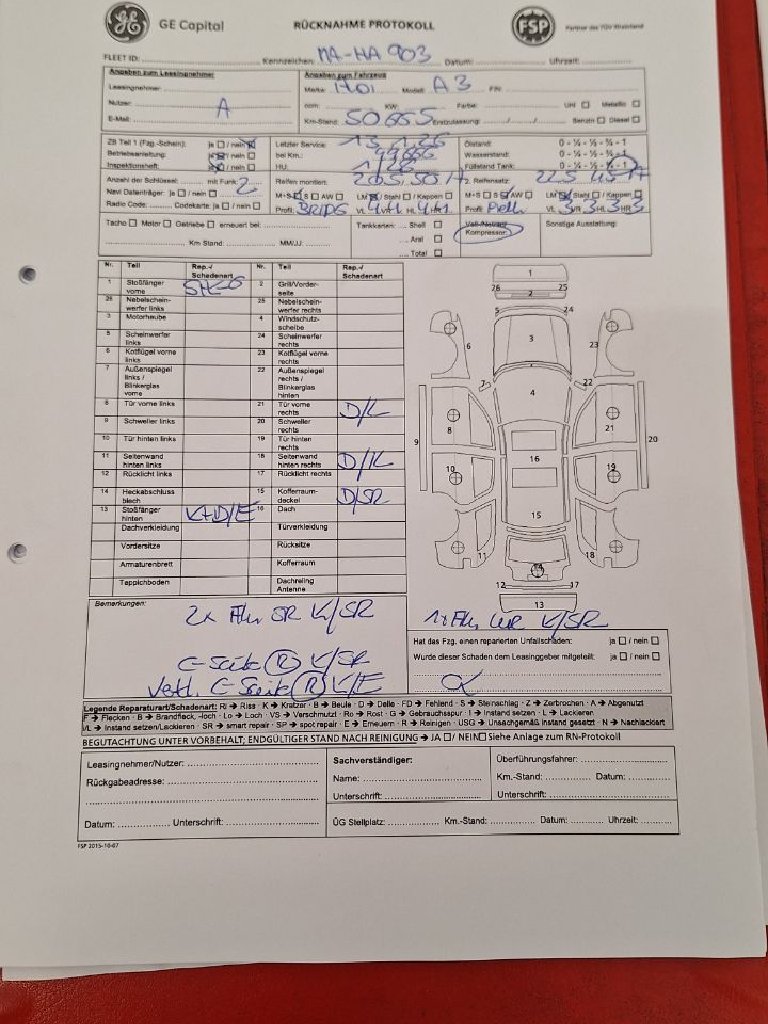 GE Capital RÜCKNAHME PROTOKOLL FSP Partner des TÜV Rheinland
FLEET ID: Kennzeichen: MA-HA 903 Datum: Uhrzeit:
Angaben zum Leasingnehmer Angaben zum Fahrzeug
Leasingnehmer: Marke: Modell: A3 FIN:
Nutzer: A KW: Farbe: Uni □ Metallic □
E-Mail: Km-Stand: 50665 Erstzulassung: Benzin □ Diesel □
ZB Teil 1 (Fzg.-Schein): ja □ / nein Letzter Service: Ölstand: 0 - ¼ - ½ - ¾ - 1
Betriebsanleitung: ja / nein □ bei Km.: Wasserstand: 0 - ¼ - ½ - ¾ - 1
Inspektionsheft: / nein □ HU: 1/26 Füllstand Tank: 0 - ¼ - ½ - ¾ - 1
Anzahl der Schlüssel: mit Funk: 2 Reifen montiert: 205/50/17 2. Reifensatz: 225 45 17
Navi Datenträger: ja □ / nein □ M+S □ S □ AW □ LM Stahl □ / Kappen □ M+S □ S □ AW □ LM Stahl □ / Kappen □
Radio Code: Codekarte: ja □ / nein □ Profil: VL HL HR Profil: VL 3 VR 3 HL 3 HR 3
Tacho □ Motor □ Getriebe □ erneuert bei: Tankkarten: Shell □ Sonstige Ausstattung:
Kompressor:
Km Stand: MM/JJ Aral □
Total □
Nr. Teil Rep.-/ Schadenart Nr. Teil Rep.-/ Schadenart
1 Stoßfänger vorne 2 Grill/Vorderseite
26 Nebelscheinwerfer links 25 Nebelscheinwerfer rechts
3 Motorhaube 4 Windschutzscheibe
5 Scheinwerfer links 24 Scheinwerfer rechts
6 Kotflügel vorne links 23 Kotflügel vorne rechts
7 Außenspiegel links / Blinkerglas vorne 22 Außenspiegel rechts / Blinkerglas hinten
8 Tür vorne links 21 Tür vorne rechts D/L
9 Schweller links 20 Schweller rechts
10 Tür hinten links 19 Tür hinten rechts
11 Seitenwand hinten links 18 Seitenwand hinten rechts
12 Rücklicht links 17 Rücklicht rechts
14 Heckabschlussblech 15 Kofferraumdeckel D/SR
13 Stoßfänger hinten K+D/E 16 Dach
Dachverkleidung Türverkleidung
Vordersitze Rücksitze
Armaturenbrett Kofferraum
Teppichboden Dachreling Antenne
1
26 25
2
5 24
3
6 23
7 22
4
8 21
9 20
16
10 19
15
11 18
14
12 17
13
Bemerkungen: 2x SR K/SR
K/SR
C-Seite (R) K/SR
C-Seite (R) K/E
Hat das Fzg. einen reparierten Unfallschaden: ja □ / nein □
Wurde dieser Schaden dem Leasinggeber mitgeteilt: ja □ / nein □
Legende Reparaturart/Schadenart: RI → Riss · K → Kratzer · B → Beule · D → Delle · FD → Fehlend · S → Steinschlag · Z → Zerbrochen · A → Abgenutzt
F → Flecken · B → Brandfleck, -loch · Lo → Loch · VS → Verschmutzt · Ro → Rost · G → Gebrauchsspur · I → Instand setzen · L → Lackieren
I/L → Instand setzen/Lackieren · SR → smart repair · SP → spot repair · E → Erneuern · R → Reinigen · USG → Unsachgemäß instand gesetzt · N → Nachlackiert
BEGUTACHTUNG UNTER VORBEHALT; ENDGÜLTIGER STAND NACH REINIGUNG → JA □ / NEIN □ Siehe Anlage zum RN-Protokoll
Leasingnehmer/Nutzer: Sachverständiger: Überführungsfahrer:
Rückgabeadresse: Name: Km.-Stand: Datum:
Unterschrift: Unterschrift:
Datum: Unterschrift: ÜG Stellplatz: Km.-Stand: Datum: Uhrzeit:
FSP 2015-10-07